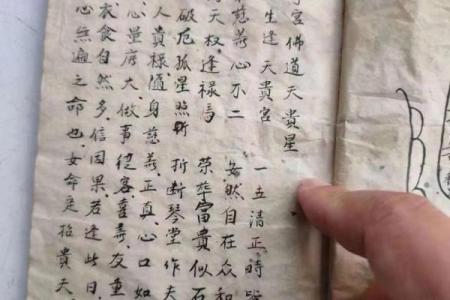 宮佛道天貴星
生逢天貴宮 一立清正時
慈善心不二 安然自在众和
天权逢禄马 荣華富貴似石
破厄孤星照 折断琴堂作夫
人貴禄隨身慈善正真心口如
心量广大做事從容喜寿友重
衣食自然多信因果若逢此日
心無遍之命也女命是招貴天